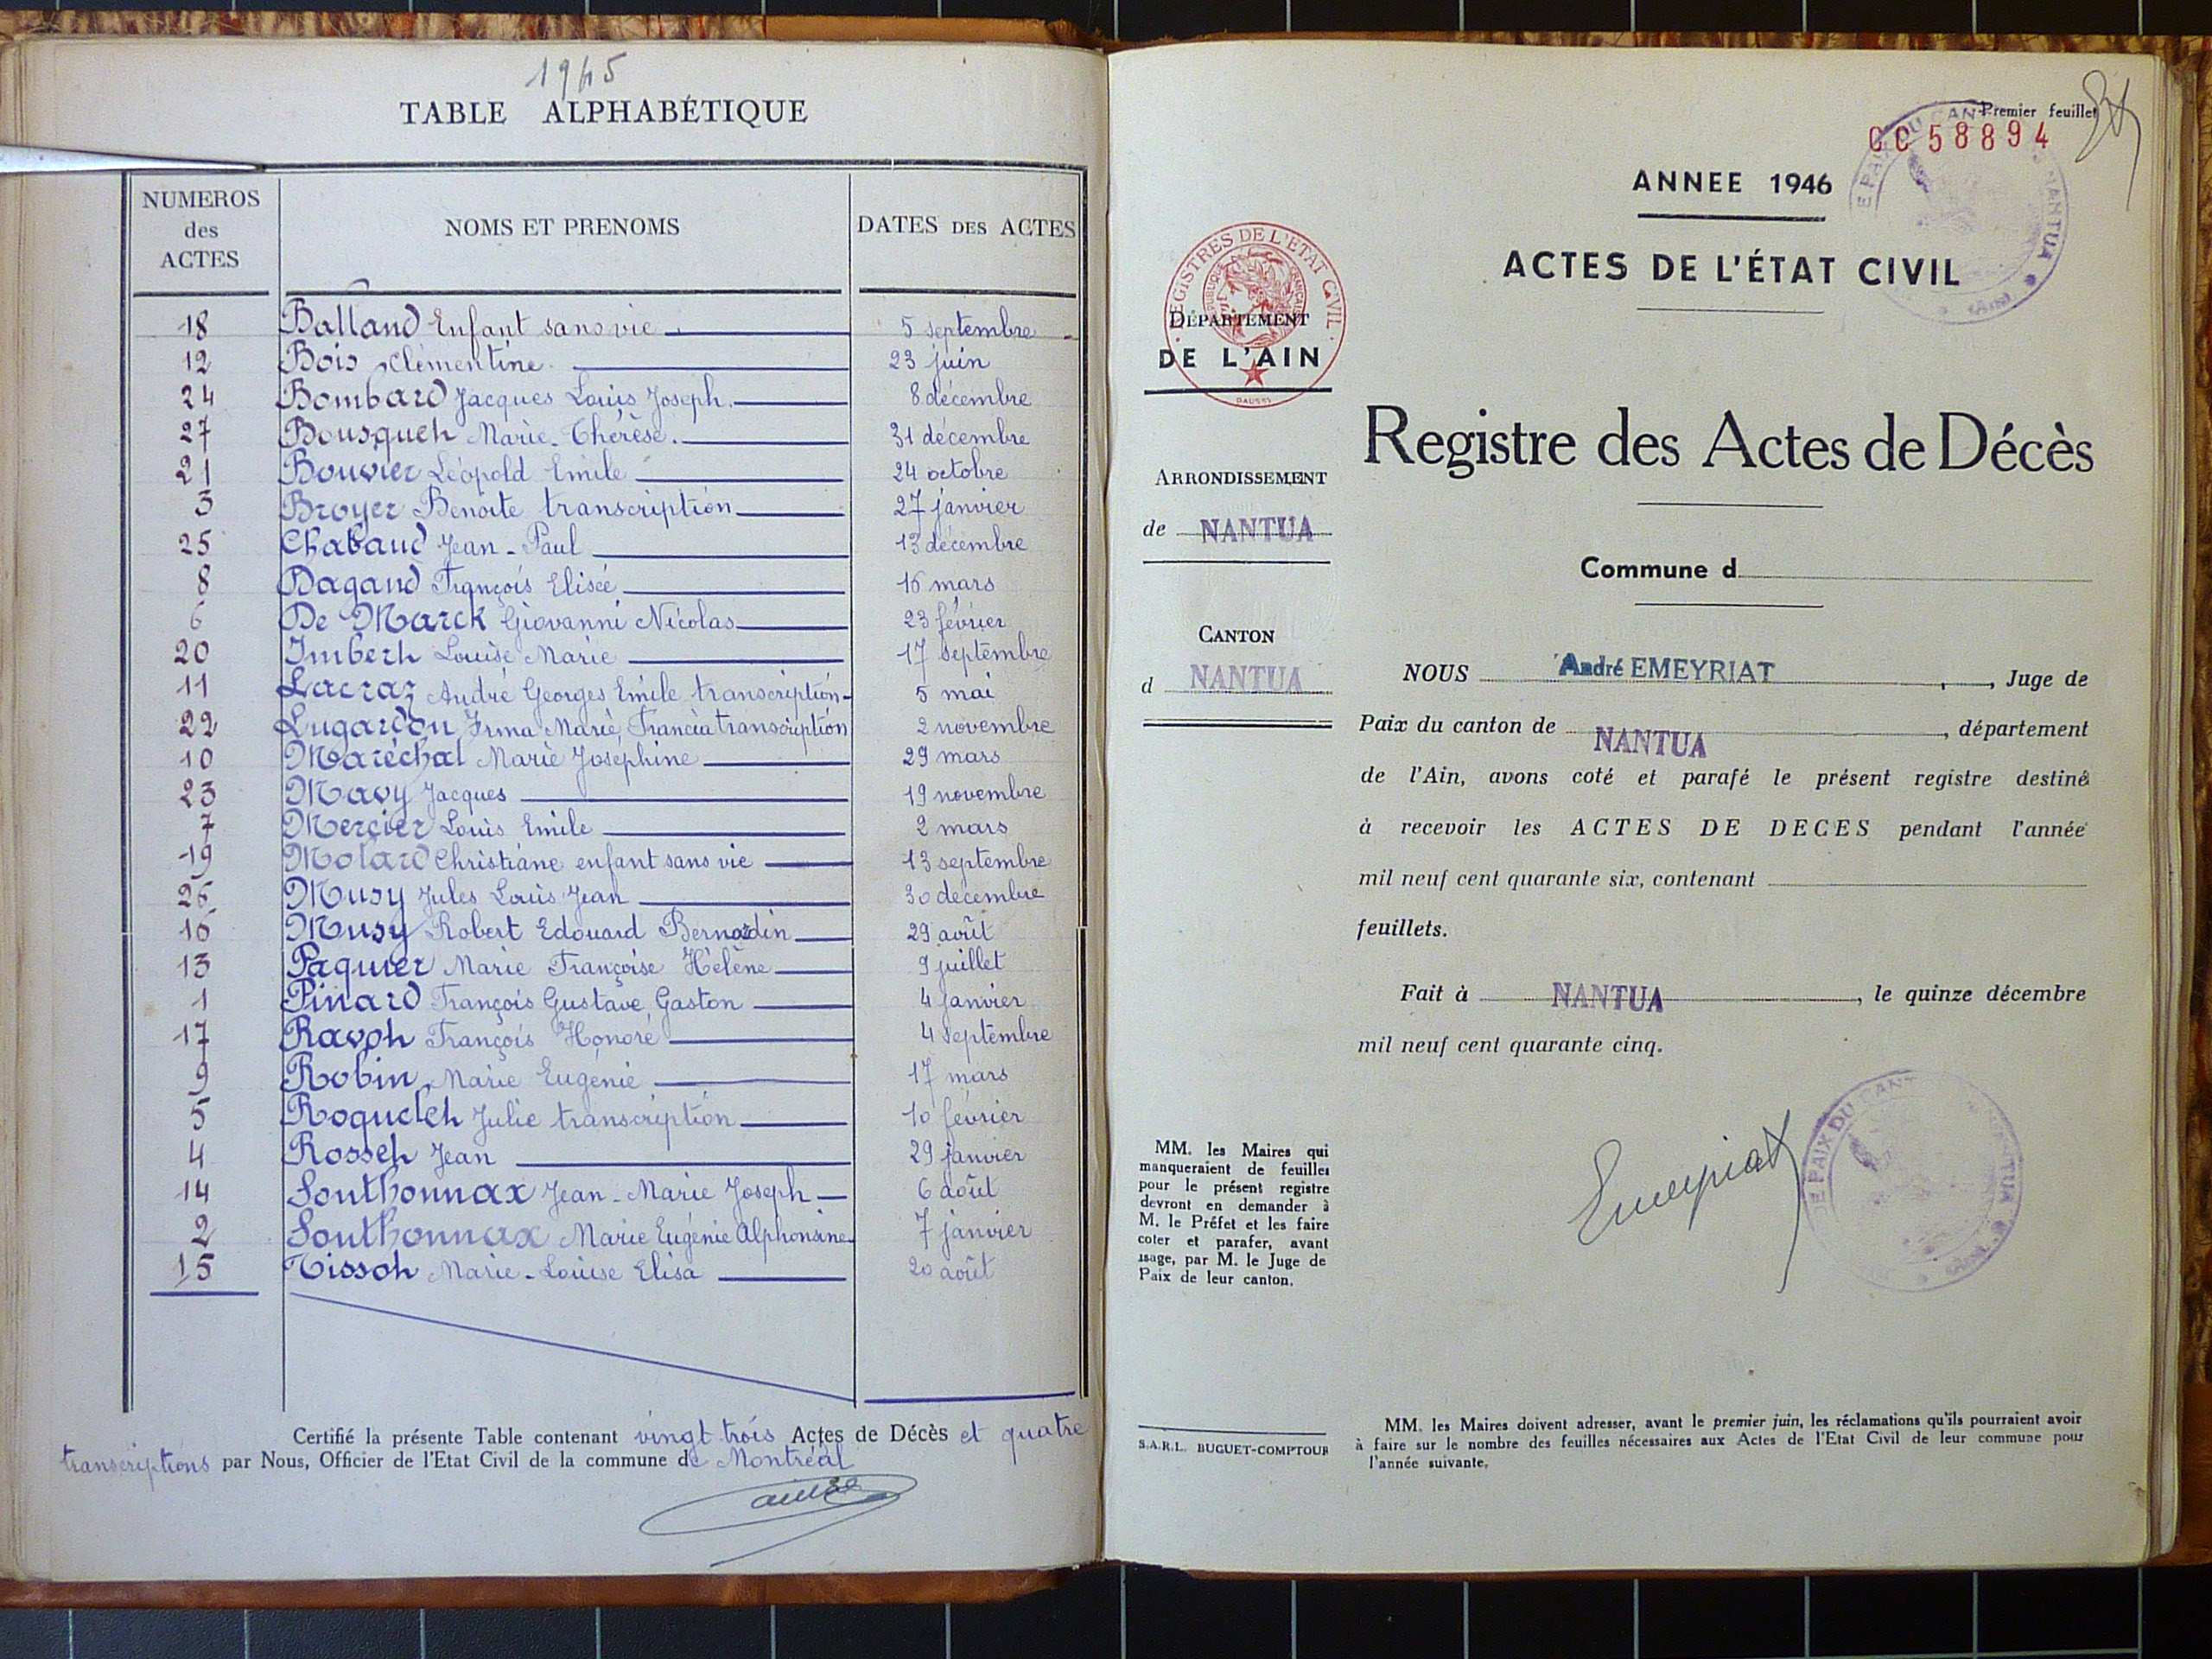 1945
TABLE ALPHABÉTIQUE
NUMEROS des ACTES NOMS ET PRENOMS DATES DES ACTES
18 Balland Enfant sans vie 5 septembre
12 Bois Clémentine 23 juin
24 Bombard Jacques Louis Joseph 8 décembre
27 Bousquet Marie-Thérèse. 31 décembre
21 Bouvier Léopold Emile 24 octobre
3 Broyer Benoite transcription 27 janvier
25 Chabaud Jean-Paul 13 décembre
8 Dagand François Elisée 16 mars
6 De Marck Giovanni Nicolas 23 février
20 Imbert Louise Marie 17 septembre
11 Lacraz André Georges Emile transcription 5 mai
22 Lugardon Irma Marie Francia transcription 2 novembre
10 Maréchal Marie Joséphine 29 mars
23 Mavy Jacques 19 novembre
7 Mercier Louis Emile 2 mars
19 Molard Christiane enfant sans vie 13 septembre
26 Musy Jules Louis Jean 30 décembre
16 Musy Robert Edouard Bernardin 29 août
13 Paquier Marie Françoise Hélène 9 juillet
1 Pinard François Gustave Gaston 4 janvier
17 Ravot François Honoré 4 septembre
9 Robin Marie Eugénie 17 mars
5 Roquelet Julie transcription 10 février
4 Rosset Jean 29 janvier
14 Southonnax Jean-Marie Joseph 6 août
2 Southonnax Marie Eugénie Alphonsine 7 janvier
15 Tissot Marie-Louise Elisa 20 août
Certifié la présente Table contenant vingt trois Actes de Décès et quatre
transcriptions par Nous, Officier de l'Etat Civil de la commune de Montréal
Premier feuillet
CC 58894
ANNEE 1946
ACTES DE L'ÉTAT CIVIL
REGISTRES DE L'ETAT CIVIL
DÉPARTEMENT
DE L'AIN
Registre des Actes de Décès
ARRONDISSEMENT
de NANTUA
Commune d
CANTON
d NANTUA
NOUS André EMEYRIAT, Juge de
Paix du canton de NANTUA, département
de l'Ain, avons coté et parafé le présent registre destiné
à recevoir les ACTES DE DECES pendant l'année
mil neuf cent quarante six, contenant
feuillets.
Fait à NANTUA, le quinze décembre
mil neuf cent quarante cinq.
Emeyriat
MM. les Maires qui
manqueraient de feuilles
pour le présent registre
devront en demander à
M. le Préfet et les faire
coter et parafer, avant
usage, par M. le Juge de
Paix de leur canton.
S.A.R.L. BUGUET-COMPTOUR
MM. les Maires doivent adresser, avant le premier juin, les réclamations qu'ils pourraient avoir
à faire sur le nombre des feuilles nécessaires aux Actes de l'Etat Civil de leur commune pour
l'année suivante.